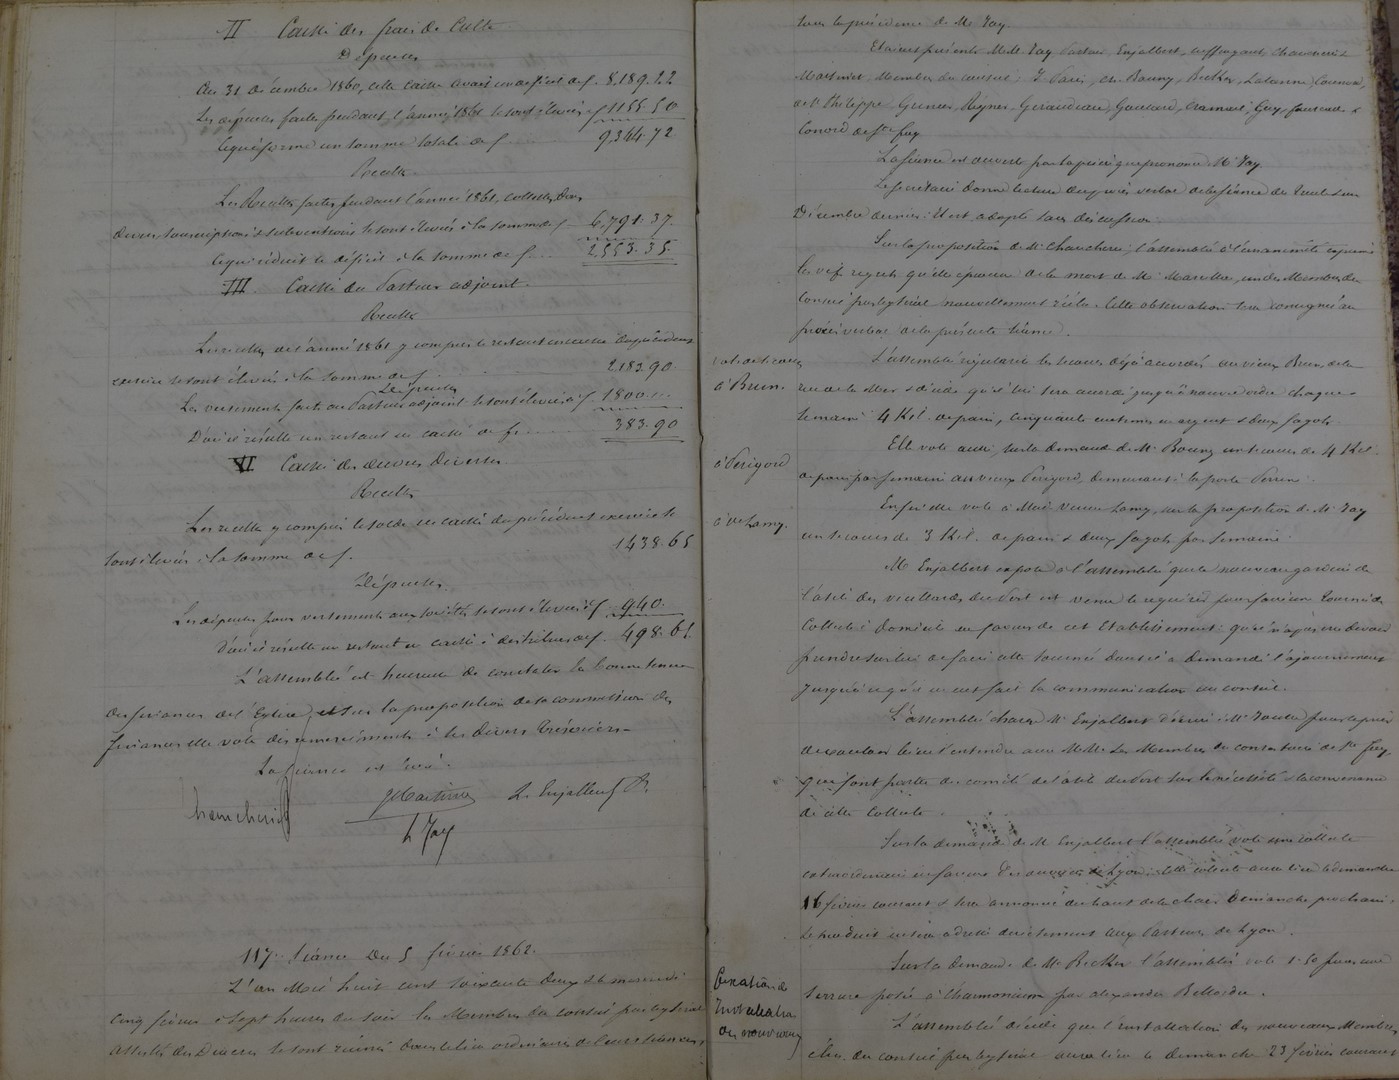 II Caisse des frais de Culte
Dépenses
Au 31 Décembre 1860, cette caisse avait un déficit de f. 8.189.22
Les dépenses faites pendant l'année 1861 se sont élevées à f 1155.50
Ce qui forme un somme totale de f 9.344.72
Recettes
Les Recettes faites pendant l'année 1861, collectes, dons,
divers, souscriptions & subventions se sont élevées à la somme de f 6.791.37.
Ce qui réduit le déficit à la somme de f. 2553.35
III Caisse du Pasteur adjoint.
Recettes
Les recettes de l'année 1861 y compris le restant en caisse du précédent
exercice se sont élevées à la somme de f. 2183.90
Dépenses
Les versements faits au Pasteur adjoint se sont élevés à f 1800
D'où il résulte un restant en caisse de f. 383.90
VI Caisse des œuvres diverses
Recettes
Les recettes y compris le solde en caisse du précédent exercice se
sont élevées à la somme de f. 1438.65
Dépenses
Les dépenses pour versements aux sociétés se sont élevées à f 940.
d'où il résulte un restant en caisse à distribuer de f. 498.65
L'assemblée est heureuse de constater la bonne tenue
des finances de l'Eglise, et sur la proposition de la commission des
finances elle vote des remerciements à ses divers trésoriers
La séance est levée.
L. Enjalbert P.
L. Fay
117e Séance du 5 février 1862.
L'an Mil huit cent soixante deux & le mercredi
cinq février à sept heures du soir les Membres du conseil presbytéral
assistés des Diacres se sont réunis dans le lieu ordinaire de leurs séances,
sous la présidence de Mr Fay.
Etaient présents M.M. Fay Pasteur, Enjalbert, suffragant,
Membres du conseil; Paris, de Bauny, Becker,
de St Philippe, Régnier, Geraudeau, Gaulard, Guy,
Conord de Ste foy
La séance est ouverte par la prière que prononce Mr Fay.
Le secrétaire donne lecture du procès verbal de la séance du trente un
Décembre dernier. Il est adopté sans discussion.
Sur la proposition de Mr l'assemblée à l'unanimité exprime
les vifs regrets qu'elle éprouve de la mort de Mr un des Membres du
Conseil presbytéral nouvellement réélu. Cette observation sera consignée au
procès verbal de la présente séance.
vote de secours
à Brun.
L'assemblée régularise les secours déjà accordés au vieux Brun de la
rue de la Mer & décide qu'il lui sera accordé jusqu'à nouvel ordre chaque
semaine 4 Kil. de pain, cinquante centimes en argent & deux fagots
à Périgord
Elle vote aussi sur la demande de Mr Bauny un secours de 4 Kil.
de pain par semaine au vieux Périgord, demeurant à la porte
à Ve Lamy.
Enfin elle vote à Mad. Veuve Lamy, sur la proposition de Mr Fay
un secours de 3 Kil. de pain & deux fagots par semaine.
M Enjalbert expose à l'assemblée que le nouveau gardien de
l'asile des vieillards du Port est venu le requérir pour faire une tournée de
Collecte à domicile en faveur de cet Etablissement: qu'il n'a pas cru devoir
prendre sur lui de faire cette tournée dont il a demandé l'ajournement
jusqu'à ce qu'il en eut fait la communication au conseil.
L'assemblée charge Mr Enjalbert d'écrire à Mr pour le prier
de vouloir bien s'entendre avec M.M. les Membres du consistoire de Ste Foy,
qui font partie du comité de l'asile du Port sur la nécessité & la convenance
de cette Collecte.
Sur la demande de M Enjalbert l'assemblée vote une collecte
extraordinaire en faveur des ouvriers de Lyon: cette collecte aura lieu le dimanche
16 février courant & sera annoncée du haut de la chaire Dimanche prochain.
Le produit en sera adressé directement aux Pasteurs de Lyon.
Sur la demande de Mr Becker l'assemblée vote 1.50 pour une
serrure posée à l'harmonium par alexandre
Fixation de
l'installation
des nouveaux
L'assemblée décide que l'installation des nouveaux Membres
élus du conseil presbytéral aura lieu le dimanche 23 février courant